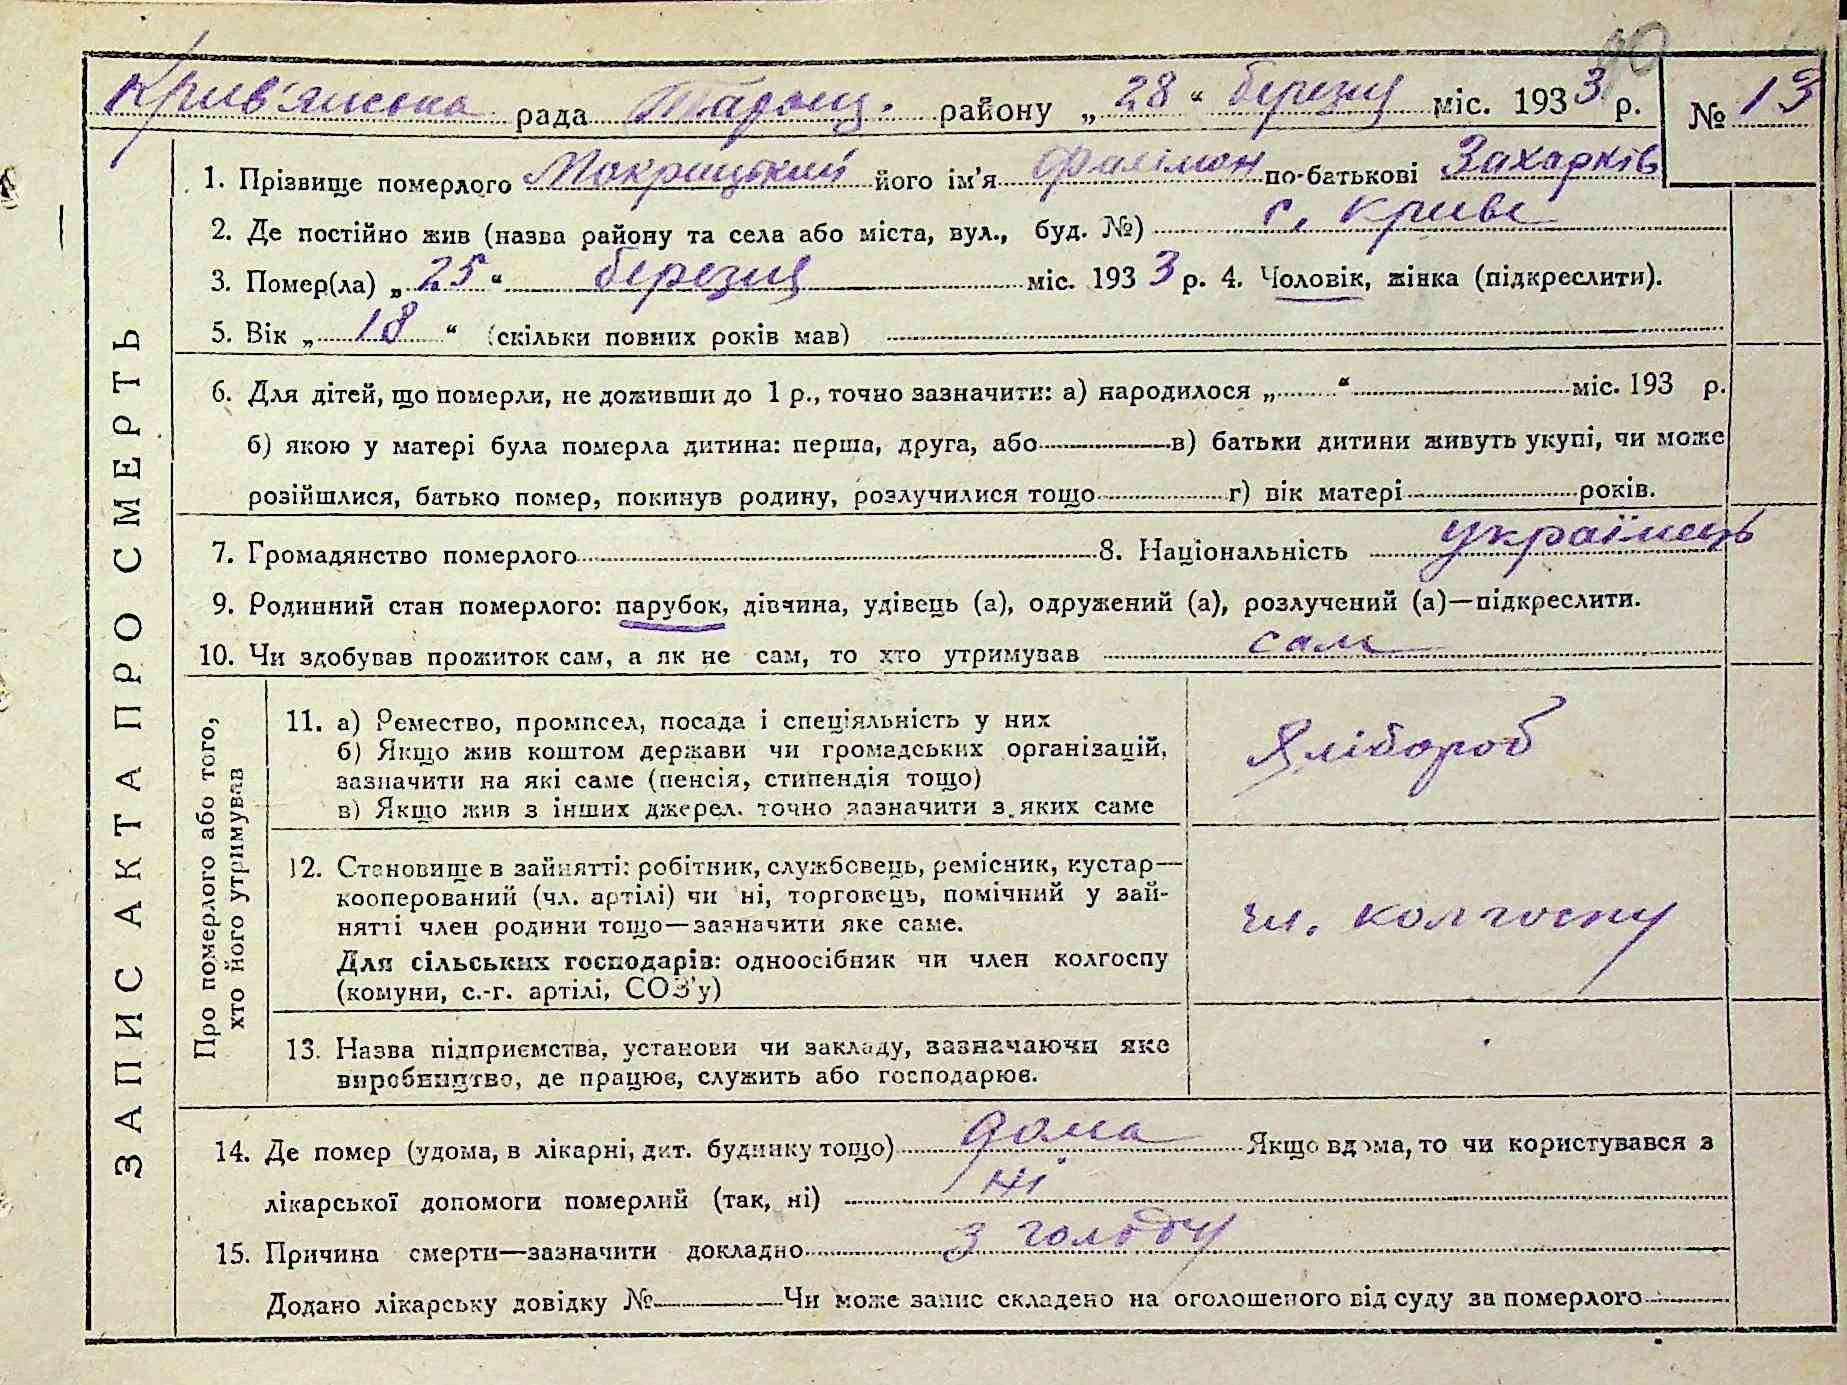 90
Крив'янська рада Таращ. району „28“ березня міс. 1933 р. № 13
ЗАПИС АКТА ПРО СМЕРТЬ
1. Прізвище померлого Мокрицький його ім'я Филімон по-батькові Захарків
2. Де постійно жив (назва району та села або міста, вул., буд. №) с. Криве
3. Помер(ла) „25“ березня міс. 1933 р. 4. Чоловік, жінка (підкреслити).
5. Вік „18“ (скільки повних років мав)
6. Для дітей, що померли, не доживши до 1 р., точно зазначити: а) народилося „ “ міс. 193 р.
б) якою у матері була померла дитина: перша, друга, або в) батьки дитини живуть укупі, чи може
розійшлися, батько помер, покинув родину, розлучилися тощо г) вік матері років.
7. Громадянство померлого 8. Національність українець
9. Родинний стан померлого: парубок, дівчина, удівець (а), одружений (а), розлучений (а)—підкреслити.
10. Чи здобував прожиток сам, а як не сам, то хто утримував сам
Про померлого або того,
хто його утримував
11. а) Ремество, промисел, посада і спеціяльність у них
б) Якщо жив коштом держави чи громадських організацій,
зазначити на які саме (пенсія, стипендія тощо)
в) Якщо жив з інших джерел. точно зазначити з яких саме
Хлібороб
12. Становище в зайнятті: робітник, службовець, ремісник, кустар—
кооперований (чл. артілі) чи ні, торговець, помічний у зай-
нятті член родини тощо—зазначити яке саме.
Для сільських господарів: одноосібник чи член колгоспу
(комуни, с.-г. артілі, СОЗ'у)
чл. колгоспу
13. Назва підприємства, установи чи закладу, зазначаючи яке
виробництво, де працює, служить або господарює.
14. Де помер (удома, в лікарні, дит. будинку тощо) дома Якщо вдома, то чи користувався з
лікарської допомоги померлий (так, ні) ні
15. Причина смерти—зазначити докладно з голоду
Додано лікарську довідку № Чи може запис складено на оголошеного від суду за померлого